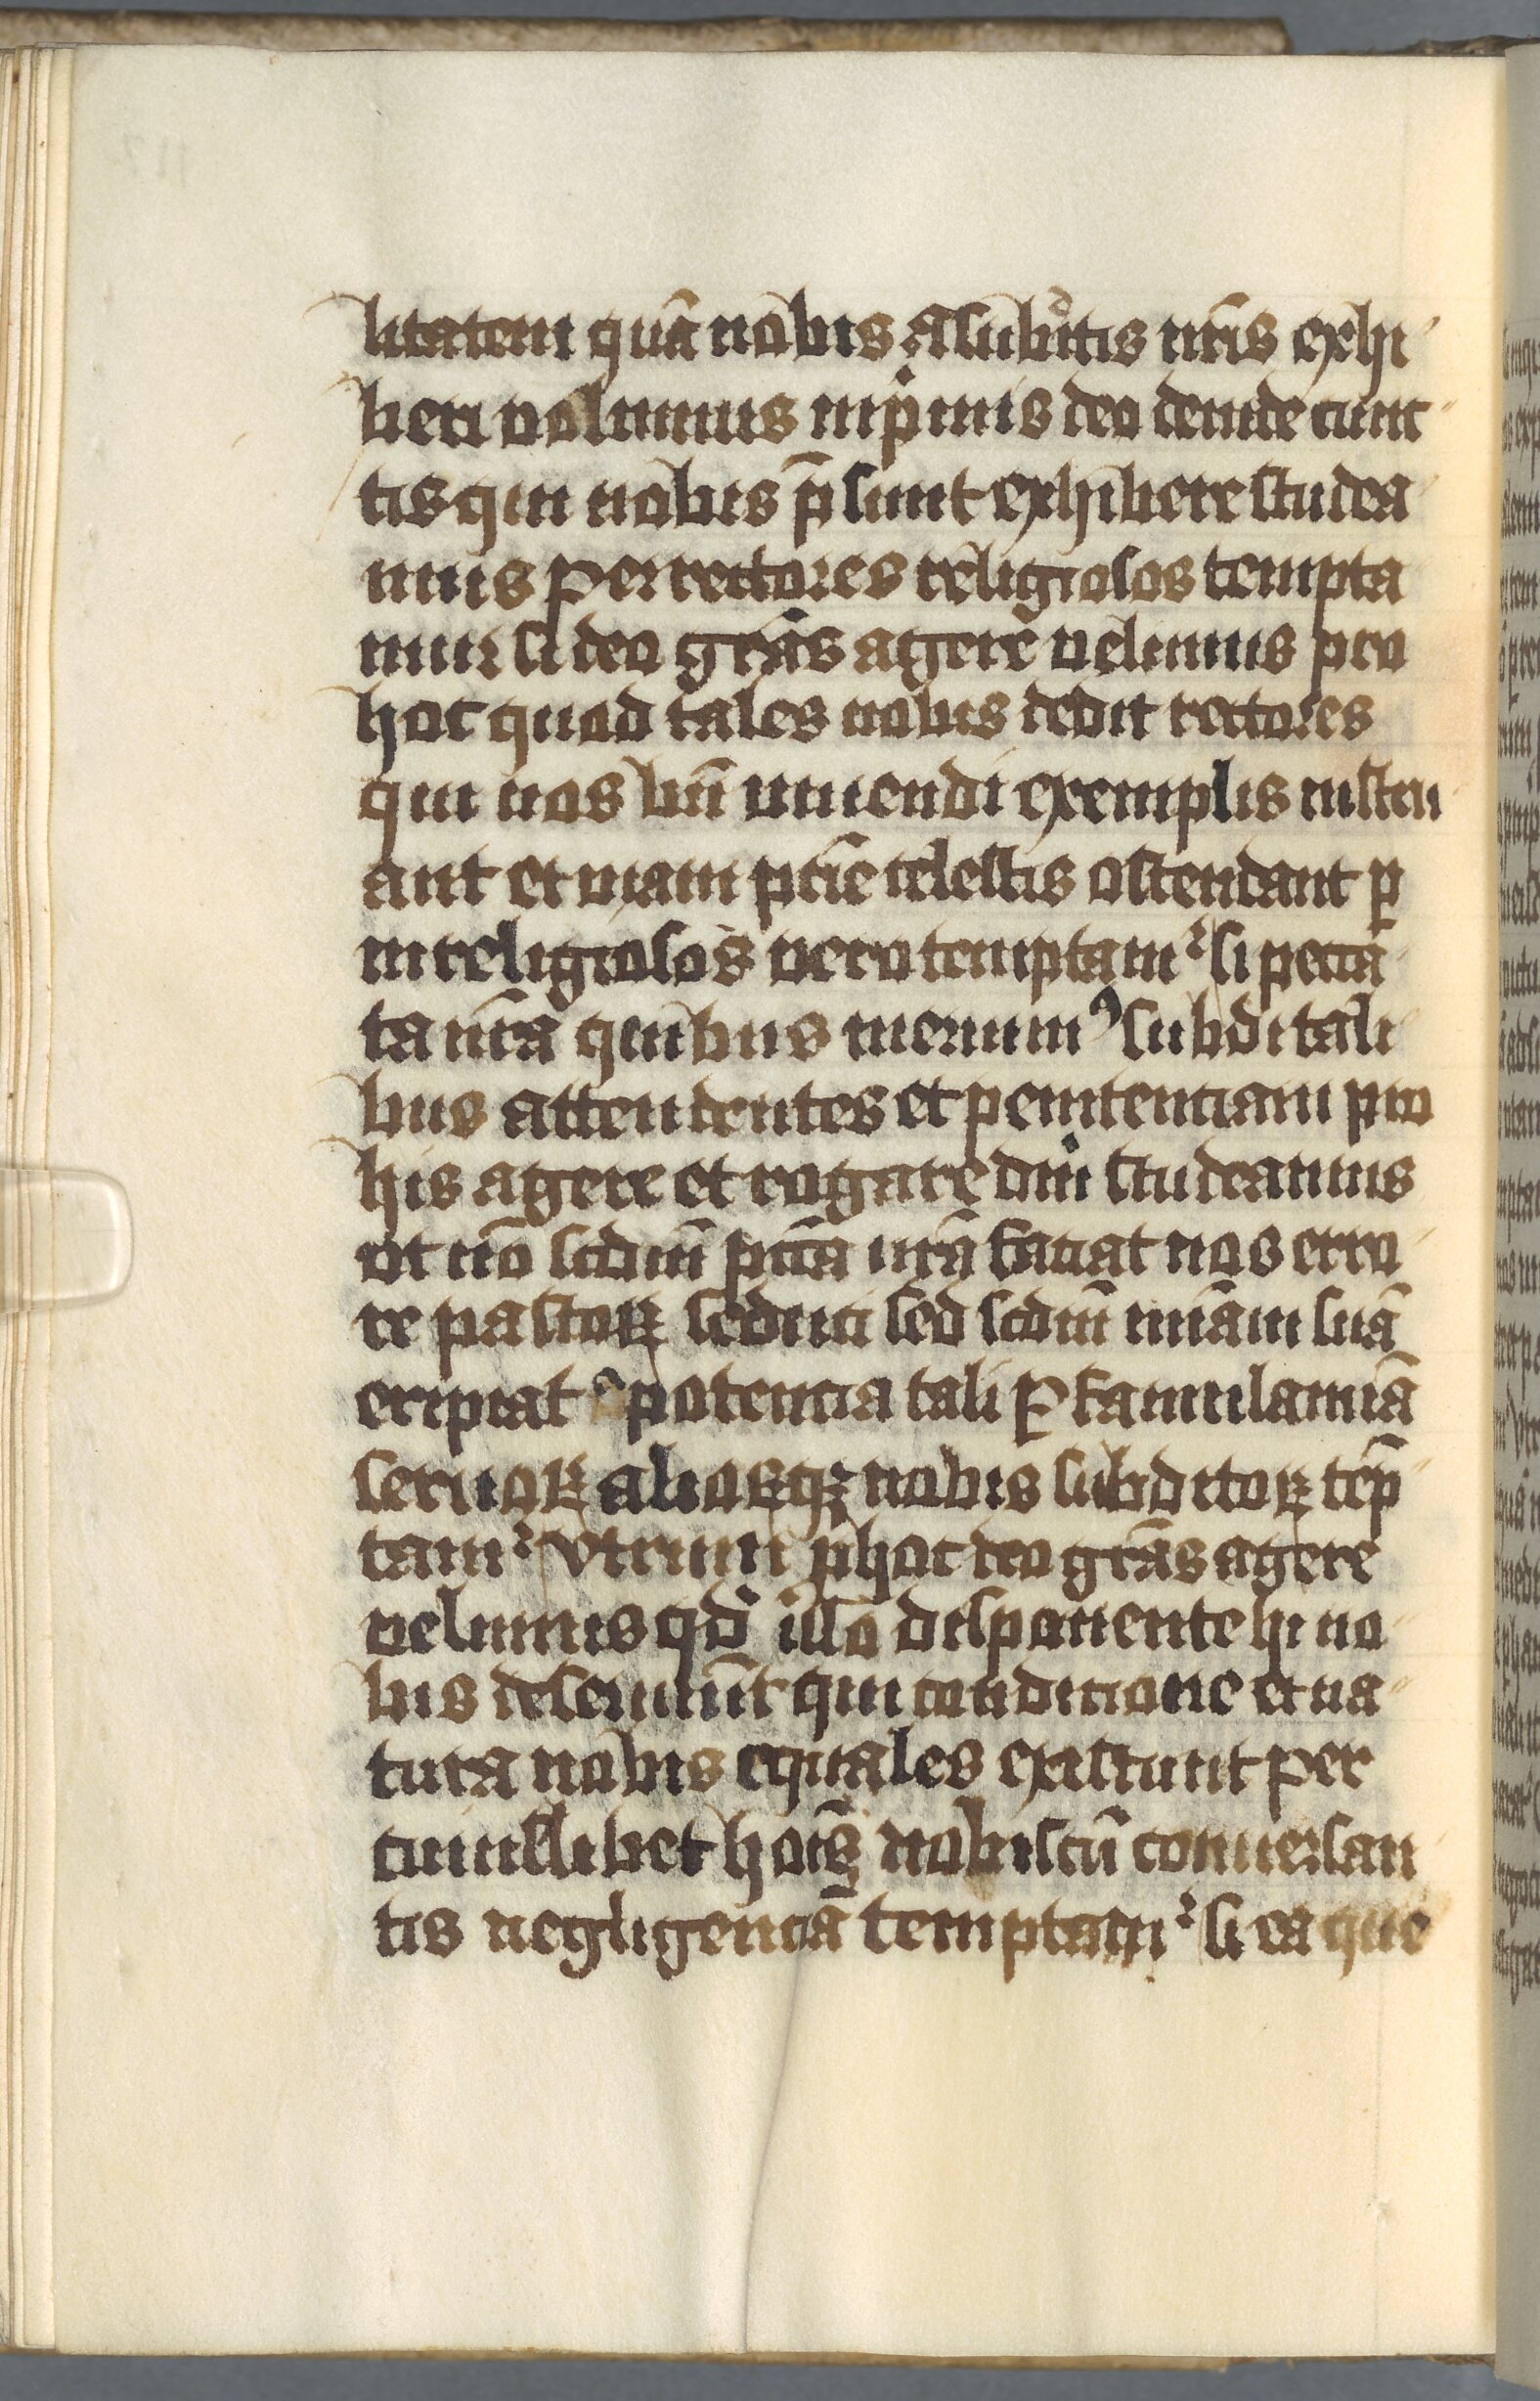 litatem quā nobis a subditis nr̄is exhi
beri volumus inpͥmis deo deinde cunc
tis qui nobis p̄sunt exhibere studea
mus Per rectores religiosos tempta
mur si deo grās agere velimus pro
hoc quod tales nobis dedit rectores
qui nos bn̄ viuendi exemplis instru
ant et viam pr̄ie celestis ostendant ꝑ
inreligiosos vero temptamʳ si pecca
ta nr̄a quibus meruimꝰ subdi tali
bus attendentes et penitenciam pro
his agere et rogare dn̄m studeamus
vt nō scdm̄ pcc̄a nr̄a faciat nos erro
re pastoꝝ seduci sed scdm̄ mīam suā
eripiat a potencia tali Per famulanciā
seruoꝝ alioꝝqꝫ nobis subditoꝝ tēp
tamʳ vtrum ꝓ hoc deo grās agere
velimus qd illo disponente hi no
bis deseruiūt qui condicione et na
tura nobis equales existunt Per
cuiuslibet hoīs nobiscū conuersan
tis negligenciā temptamʳ si ea que